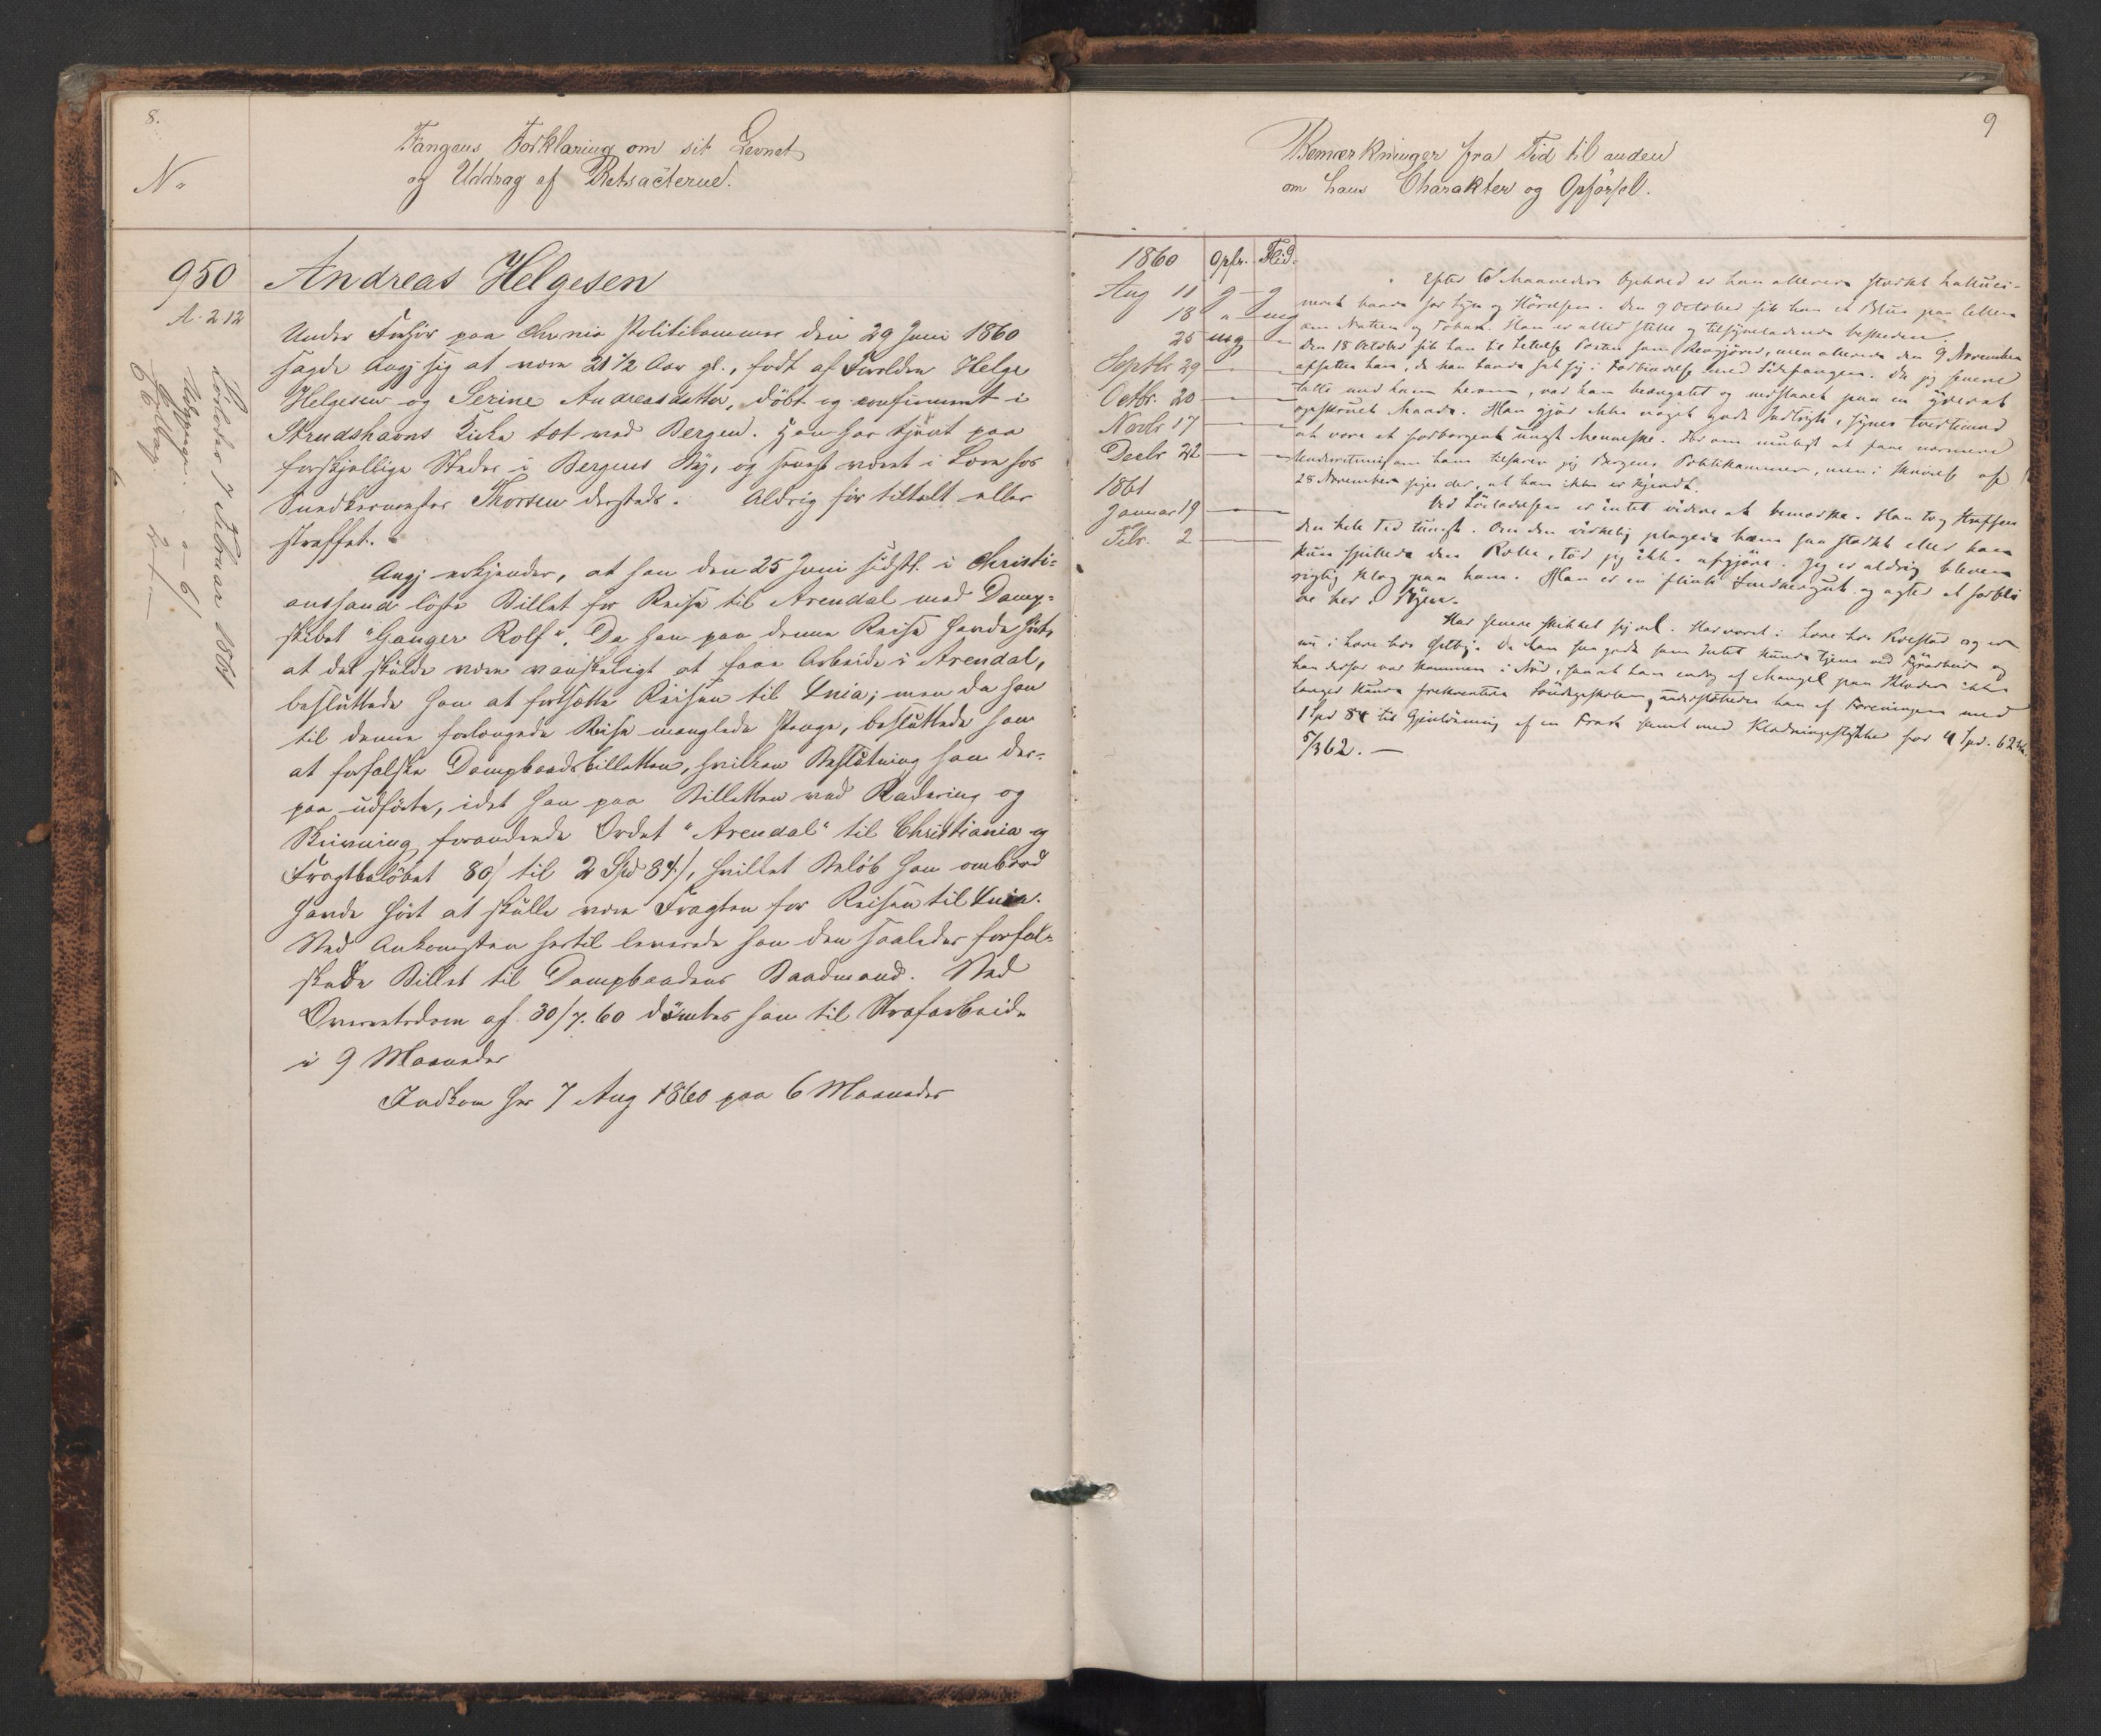 8.
No
Fangens Forklaring om sit Levnet
og Uddrag af Retsacterne.
950
A. 212
Løsladt 7 Februar 1861
Andreas Helgesen
Under Forhør paa Chrnia Politikammer den 29 Juni 1860
sagde Angj sig at være 21 1/2 Aar gl., født af Forældre Helge
Helgesen og Serine Andreasdatter, døbt og confirmeret i
Strudshavns Kirke tæt ved Bergen. Han har tjent paa
forskjellige Steder i Bergens By, og senest været i Lære hos
Snedkermester Thorsen dersteds. Aldrig før tiltalt eller
straffet.
Angj erkjender, at han den 25 Juni sidstl. i Christi-
anssand løste Billet for Reise til Arendal med Damp-
skibet "Ganger Rolf". Da han paa denne Reise havde hørt,
at det skulde være vanskeligt at faae Arbeide i Arendal,
besluttede han at fortsætte Reisen til Xnia; men da han
til denne forlængede Reise manglede Penge, besluttede han
at forfalske Dampbaadsbilletten, hvilken Beslutning han der-
paa udførte, idet han paa Billetten ved Radering og
Skrivning forandrede Ordet "Arendal" til Christiania og
Fragtbeløbet 80/ til 2 Spd 84/, hvilket Beløb han ombord
havde hørt at skulle være Fragten for Reisen til Xnia.
Ved Ankomsten hertil leverede han den saaledes forfal-
skede Billet til Dampbaadens Baadmand. Ved
Overretsdom af 30/7. 60 dømtes han til Strafarbeide
i 9 Maaneder
Indkom her 7 Aug 1860 paa 6 Maaneder
9
Bemærkninger fra Tid til anden
om hans Charakter og Opførsel.
1860 Opf. Flid.
Aug 11 g - g
18 " - mg
25 mg - "
Septbr 29 — —
Octbr. 20 — —
Novbr 17 — —
Decbr 22 — —
1861
Januar 19 — —
Febr. 2 — —
Efter to Maaneders Ophold er han allerede stærkt halluci-
neret baade for Syn og Hørelsen. Den 9 October fik han et Blus paa Cellen
om Natten og Tobak. Han er altid stille og tilsyneladende beskeden.
Den 18 October fik han til Lettelse Posten som Rengjører, men allerede den 9 November
afsattes han, da han havde sat sig i Forbindelse med Sidefangen. Da jeg senere
talte med ham herom, var han beængstet og nedslaaet paa en yderst
opskruet Maade. Han gjør ikke noget godt Indtryk, synes tvertimod
at være et forborgent ungt Menneske. For om muligt at faae nærmere
Underretning om ham tilskrev jeg Bergens Politikammer, men i Skrivelse af
28 November siges der, at han ikke er kjendt.
Ved Løsladelsen er intet videre at bemærke. Han tog Straffen
den hele Tid tungt. Om den virkelig plagede ham saa stærkt eller han
kun spillede den Rolle, tør jeg ikke afgjøre. Jeg er aldrig bleven
rigtig klog paa ham. Han er en flink Snedkergut og agter at forbli
ve her i Byen.
Har senere skikket sig vel. Har været i Lære hos Roestad og er
nu i Lære hos Da han saa godt som Intet kunde tjene ved og
han derfor var kommen i Nød, saa at han endog af Mangel paa Klæder ikke
længer kunde frekventere Søndagsskolen, understøttedes han af Foreningen med
1 Spd 84 til Gjenløsning af en Frak samt med Klædningsstykker for 4 Spd. 62
5/3 62. —